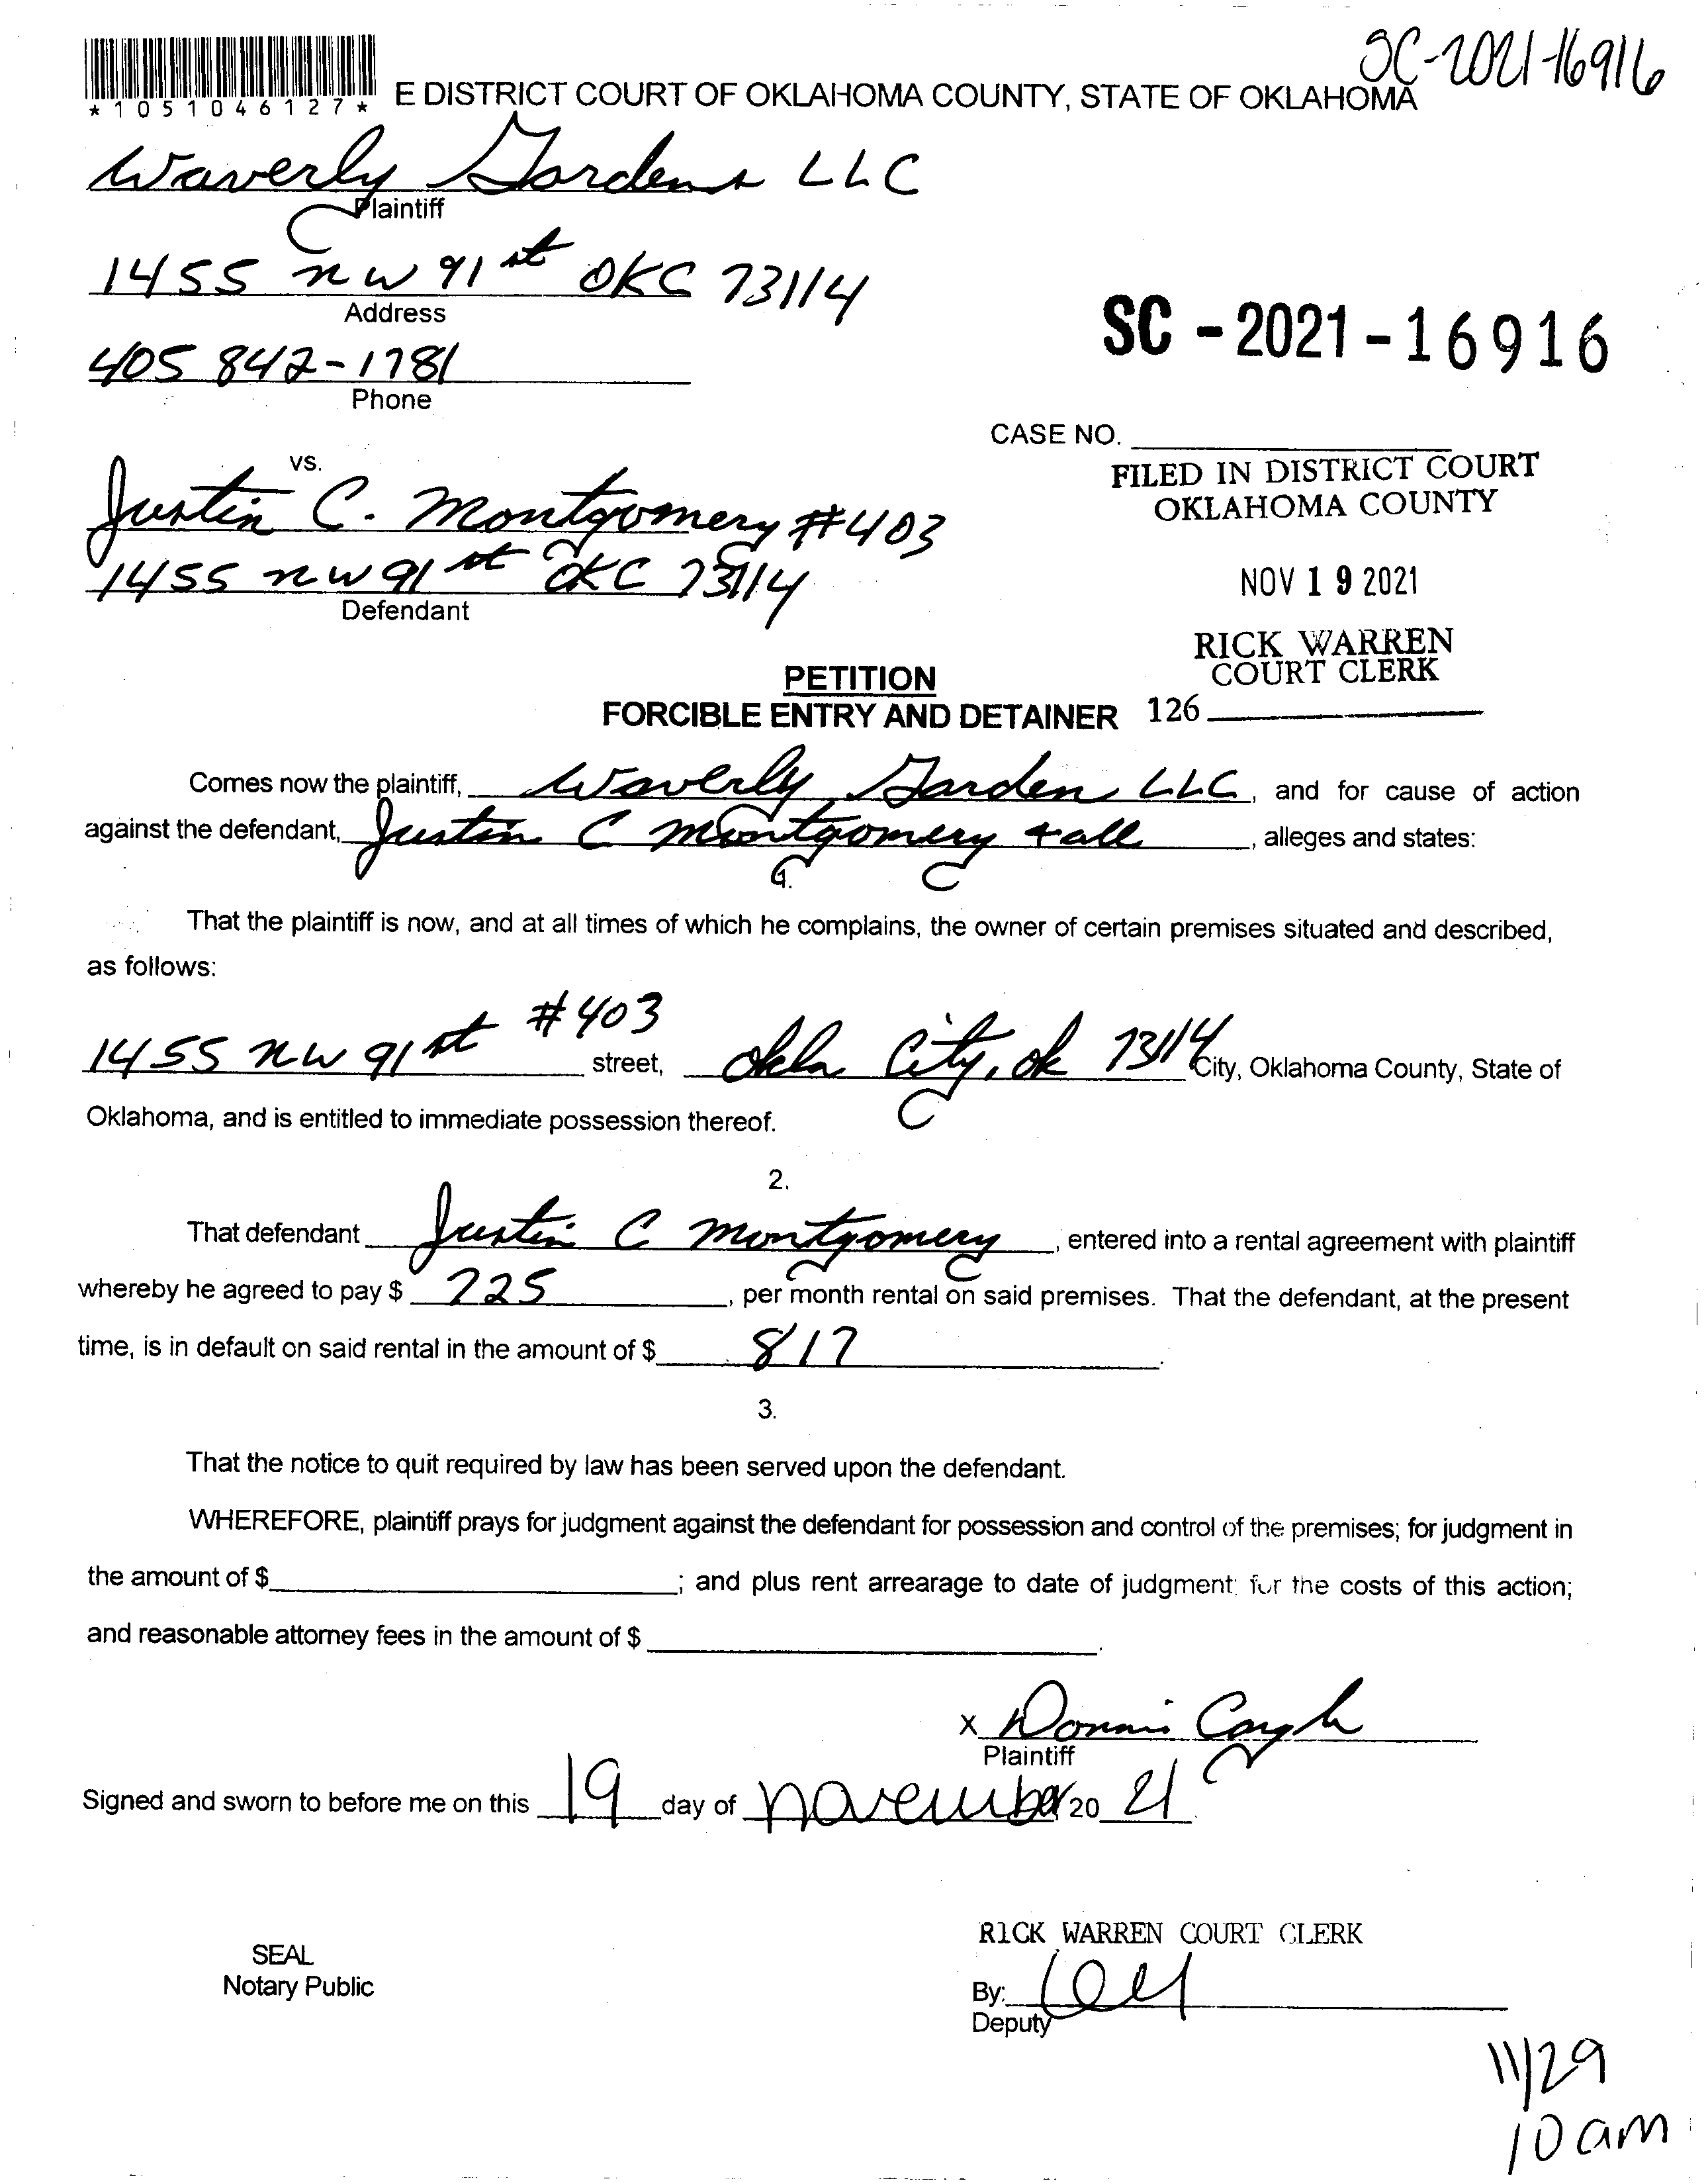 SC-2021-16916
*1051046127* E DISTRICT COURT OF OKLAHOMA COUNTY, STATE OF OKLAHOMA
Waverly Gardens LLC
Plaintiff
1455 NW 91st OKC 73114
Address
SC - 2021 - 16916
405 842-1781
Phone
CASE NO.
FILED IN DISTRICT COURT
OKLAHOMA COUNTY
vs.
Justin C. Montgomery #403
1455 NW 91st OKC 73114
Defendant
NOV 19 2021
RICK WARREN
COURT CLERK
PETITION
FORCIBLE ENTRY AND DETAINER 126
Comes now the plaintiff, Waverly Garden LLC, and for cause of action
against the defendant, Justin C Montgomery & all, alleges and states:
1.
That the plaintiff is now, and at all times of which he complains, the owner of certain premises situated and described,
as follows:
1455 NW 91st #403 street, Okla City, Ok 73114 City, Oklahoma County, State of
Oklahoma, and is entitled to immediate possession thereof.
2.
That defendant Justin C Montgomery, entered into a rental agreement with plaintiff
whereby he agreed to pay $ 725, per month rental on said premises. That the defendant, at the present
time, is in default on said rental in the amount of $ 817.
3.
That the notice to quit required by law has been served upon the defendant.
WHEREFORE, plaintiff prays for judgment against the defendant for possession and control of the premises; for judgment in
the amount of $ ; and plus rent arrearage to date of judgment; for the costs of this action;
and reasonable attorney fees in the amount of $ .
X
Plaintiff
Signed and sworn to before me on this 19 day of November 20 21.
RICK WARREN COURT CLERK
SEAL
Notary Public
By:
Deputy
11/29
10 am